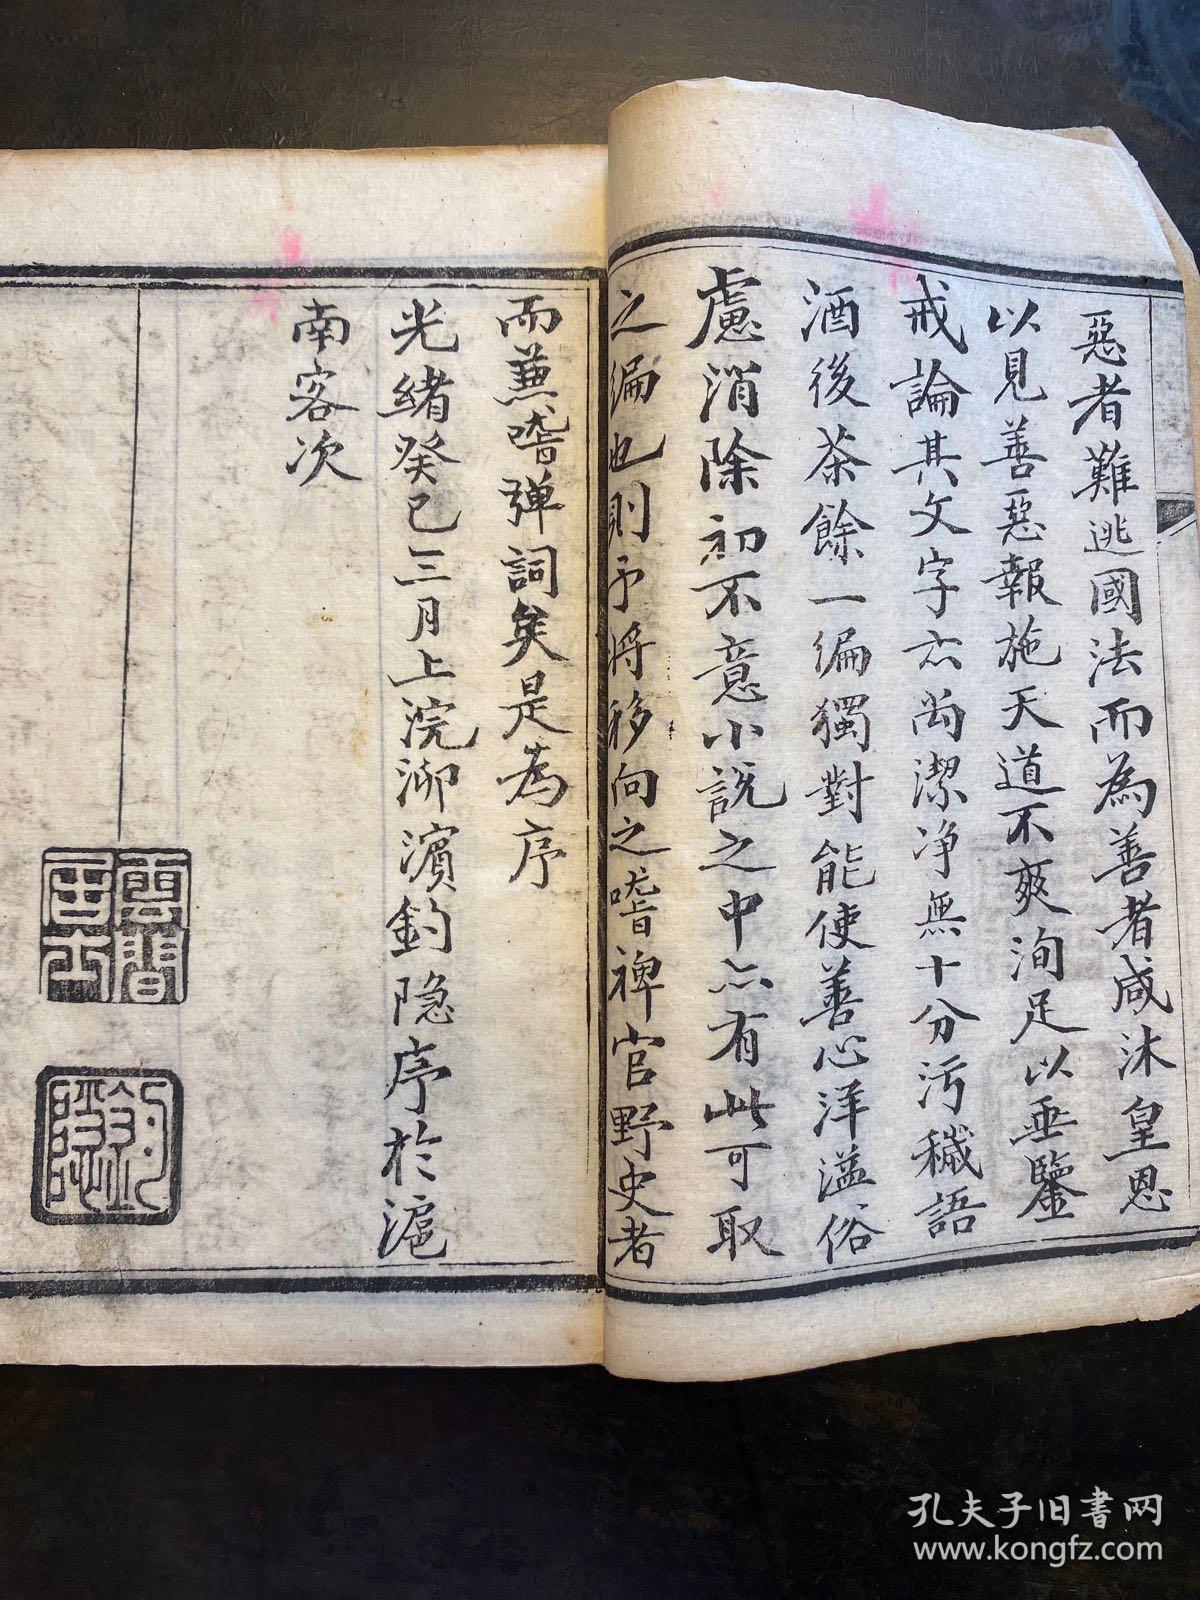 惡者難逃國法而為善者咸沐皇恩
以見善惡報施天道不爽洵足以垂鑒
戒論其文字亦尚潔净無十分污穢語
酒後茶餘一編獨對能使善心洋溢俗
慮消除初不意小說之中亦有此可取
之編也則予將移向之嗜稗官野史者
而兼嗜弹詞矣是為序
光緒癸巳三月上浣泖濱釣隐序於滬
南客次
雲間
釣隱
孔夫子旧书网
www.kongfz.com